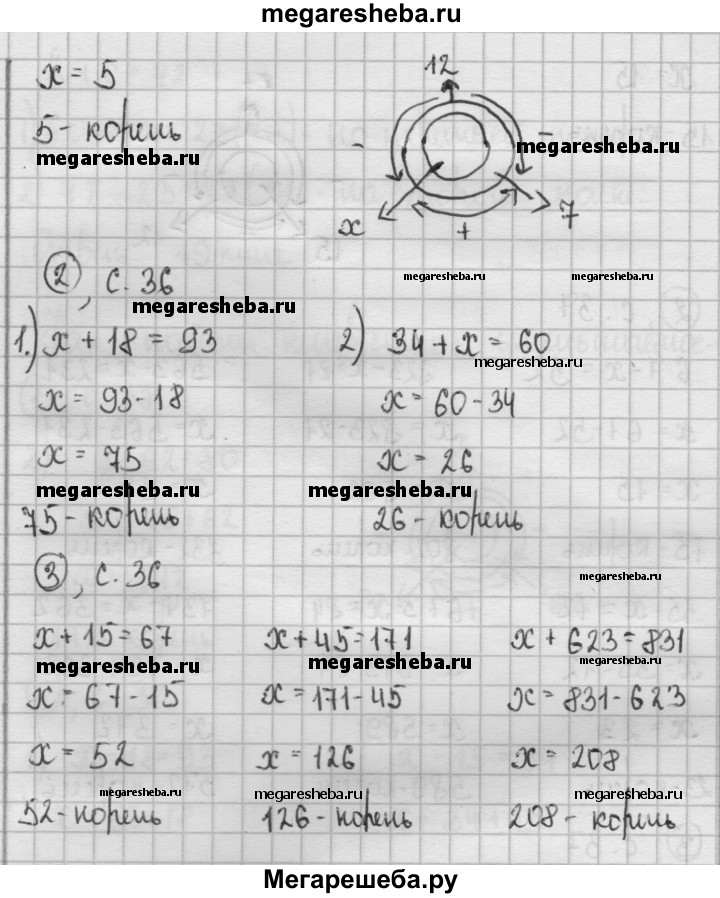 megaresheba.ru
x = 5
12
5 - корень
megaresheba.ru
- - megaresheba.ru
x + 7
2, с. 36
megaresheba.ru megaresheba.ru
megaresheba.ru
1.) x + 18 = 93 2) 34 + x = 60
megaresheba.ru
x = 93 - 18 x = 60 - 34
x = 75 x = 26
megaresheba.ru megaresheba.ru
75 - корень 26 - корень
3, с. 36 megaresheba.ru
x + 15 = 67 x + 45 = 171 x + 623 = 831
megaresheba.ru megaresheba.ru megaresheba.ru
x = 67 - 15 x = 171 - 45 x = 831 - 623
x = 52 x = 126 x = 208
megaresheba.ru megaresheba.ru megaresheba.ru
52 - корень 126 - корень 208 - корень
Мегарешеба.ру